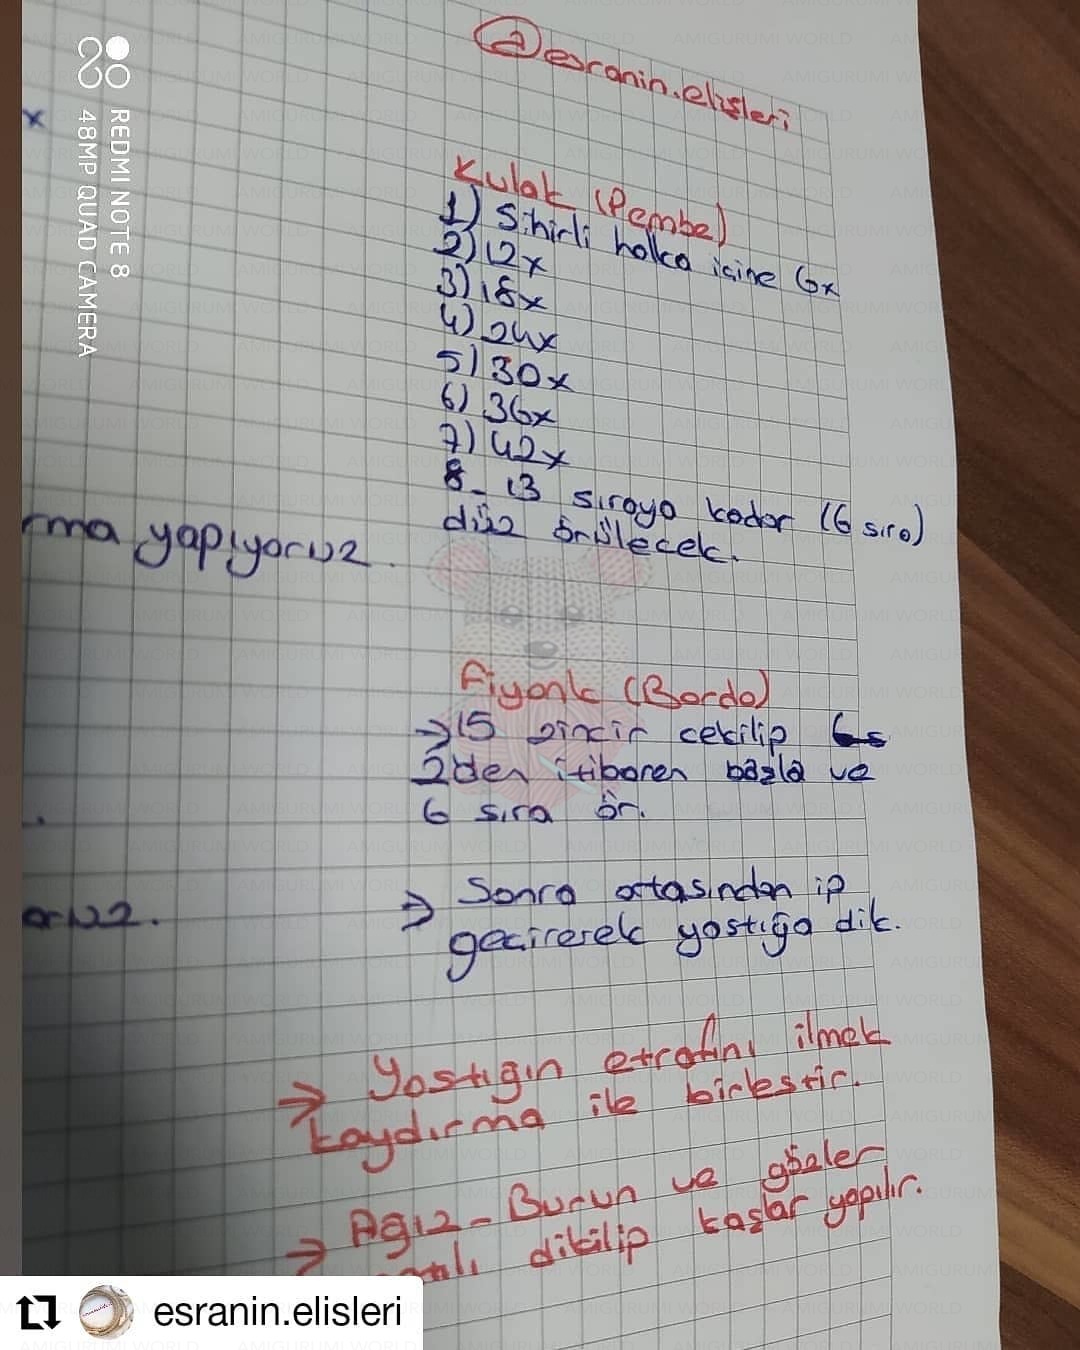 @esranin.elisleri
REDMI NOTE 8
48MP QUAD CAMERA
x
Kulak (Pembe)
1) Sihirli halka içine 6x
2) 12x
3) 18x
4) 24x
5) 30x
6) 36x
7) 42x
8- 13 sıraya kadar (6 sıra)
düz örülecek.
rma yapıyoruz.
Fiyonk (Bordo)
→ 15 zincir çekilip
2den itibaren başla ve
6 sıra ör.
→ Sonra ortasından ip
geçirerek yastığa dik.
oruz.
→ Yastığın etrafını ilmek
kaydırma ile birleştir.
→ Ağız - Burun ve gözler
dikilip kaşlar yapılır.
esranin.elisleri
AMIGURUMI WORLD